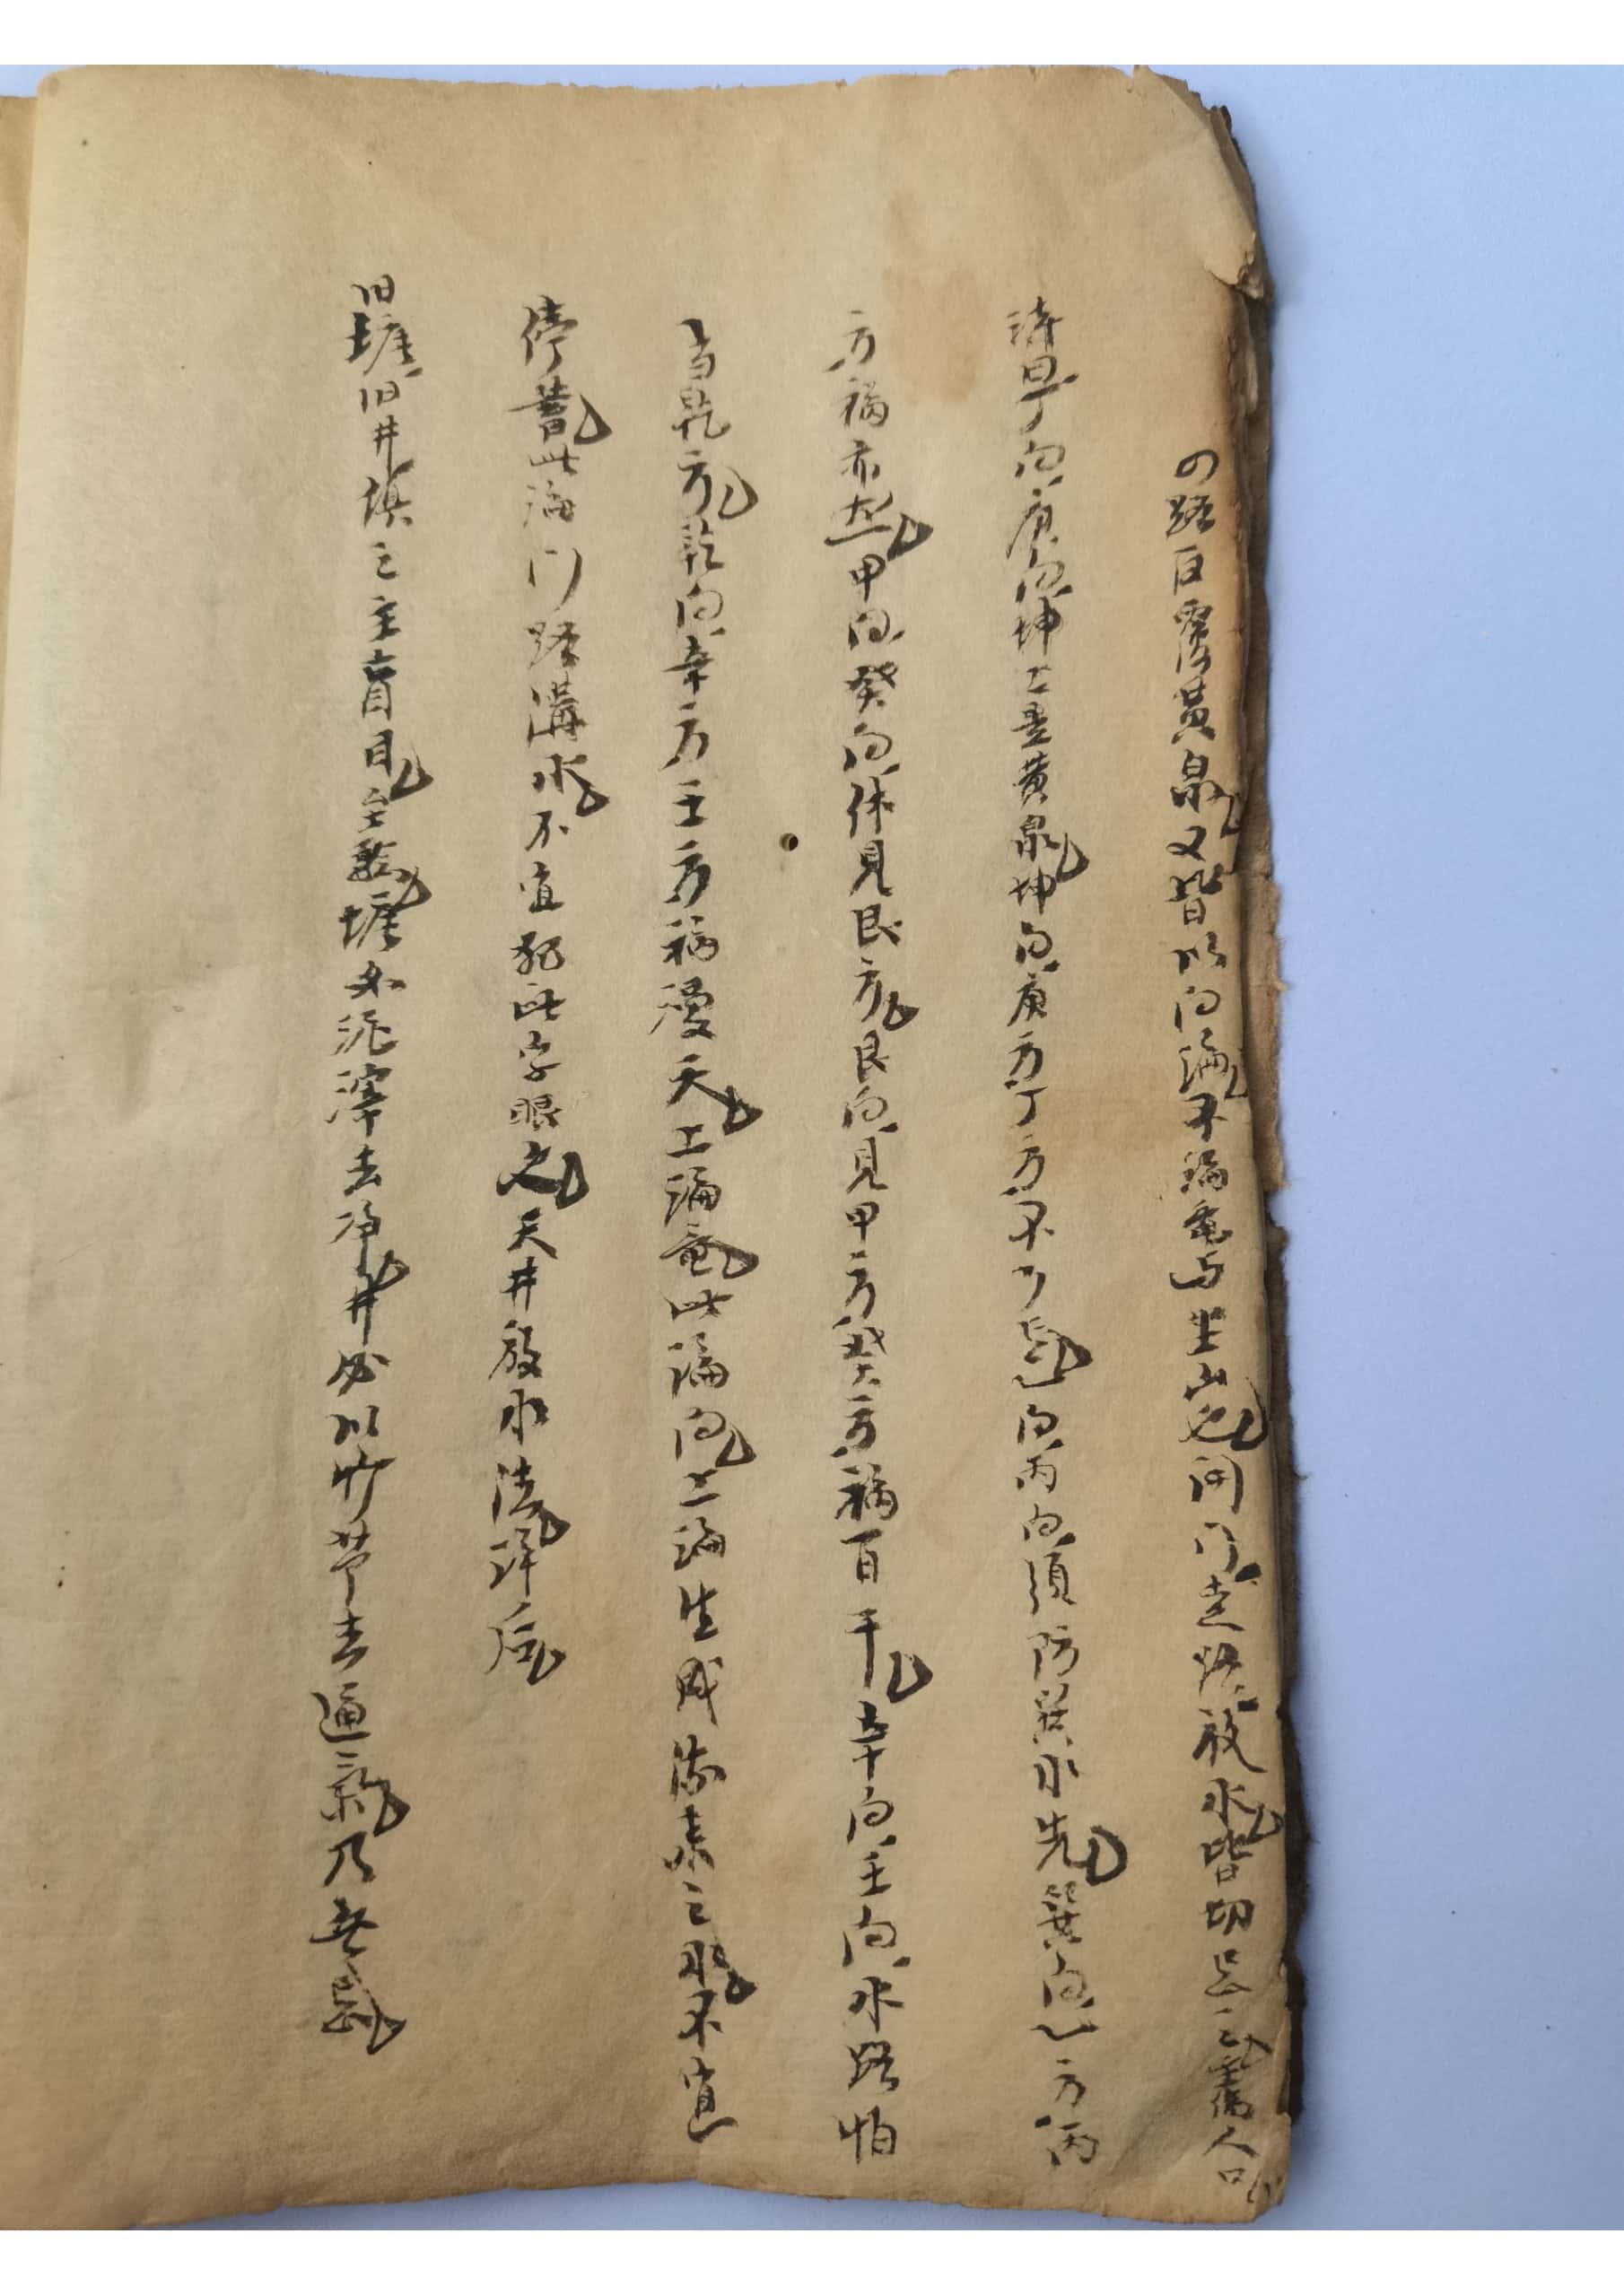 四路反覆黄泉又皆以向論不論龍与坐山也開门走路放水皆切忌之主傷人口
詩曰丁向庚向坤上是黄泉坤向庚方丁方不可言乙向丙向須防巽水先巽向乙方丙
方禍亦然甲向癸向休見艮方艮向見甲方癸方禍百千辛向壬向水路怕
当乾方乾向辛方壬方禍漫天上論龍此論向二論生成流来之水不宜
停蓄此論门路溝水不宜犯此字眼之天井放水法詳后
旧塘旧井填之主盲目主塘必泥滓去净井必以竹节去通氣乃無忌